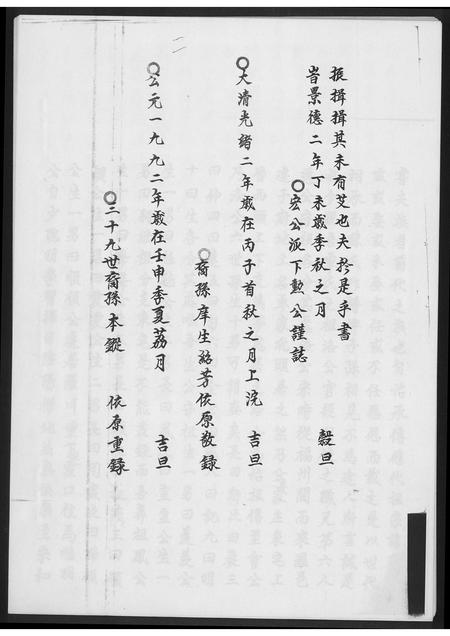 振揖揖其未有艾也夫於是手書
旹景德二年丁未歲季秋之月 穀旦
○宏公派下勲公謹誌
○大清光緒二年歲在丙子首秋之月上浣 吉旦
○裔孫庠生紹芳依原敬錄
○公元一九九二年歲在壬申季夏荔月 吉旦
○三十九世裔孫本鏦 依原重錄